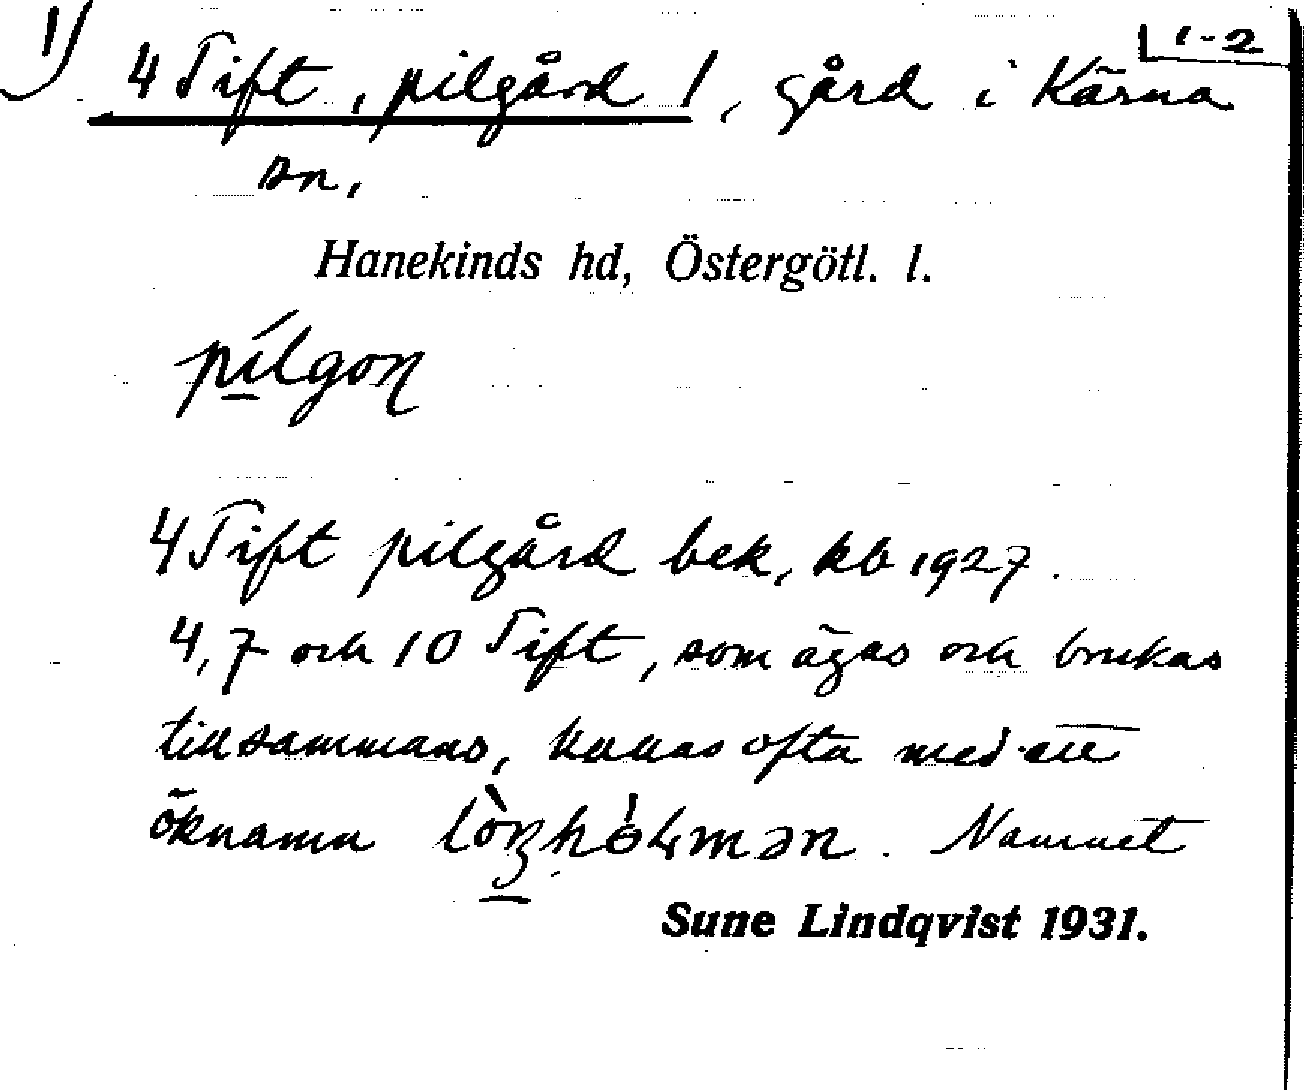 1) 1-2
4 Tift, pilgård 1, gård i Kärna
sn.
Hanekinds hd, Östergötl. l.
4 Tift pilgård bek, kb 1927.
4, 7 och 10 Tift, som ägas och brukas
tillsammans, kallas ofta med ett
öknamn Namnet
Sune Lindqvist 1931.